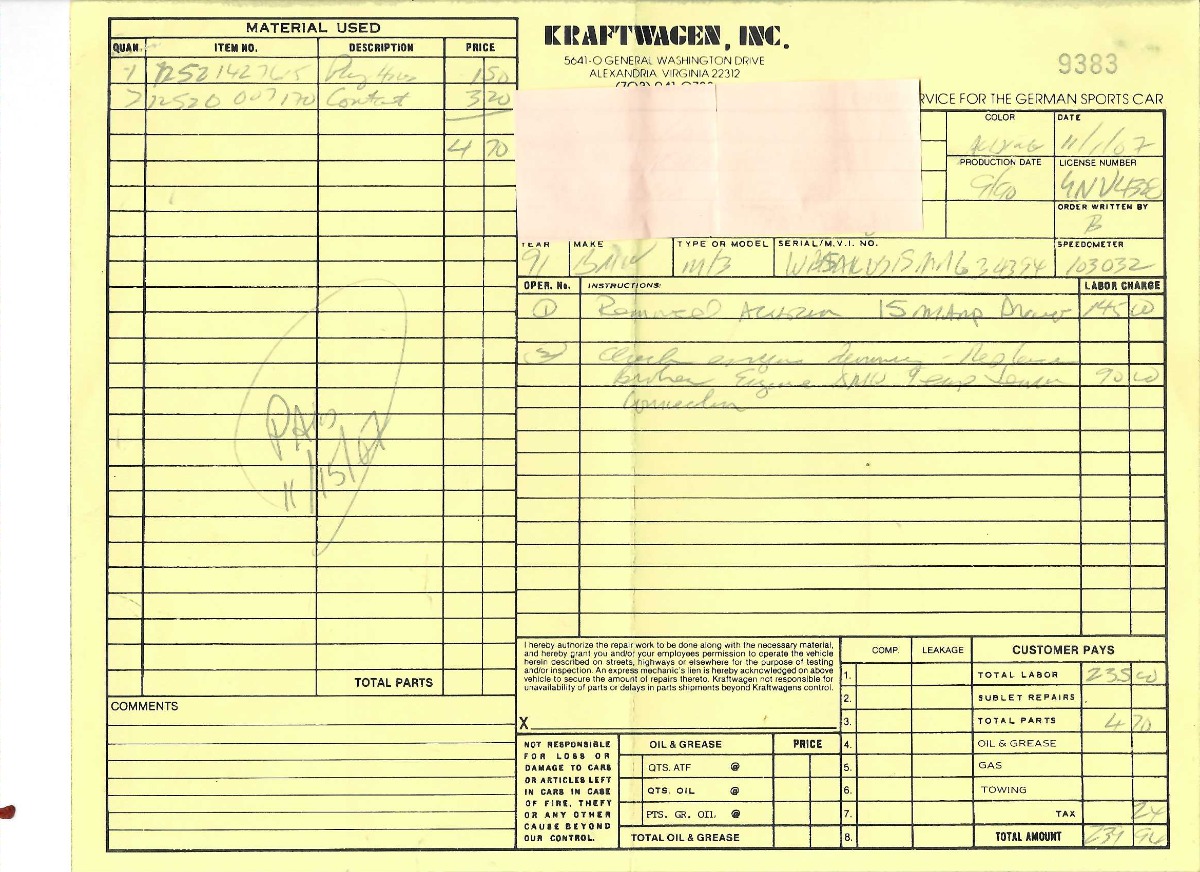 MATERIAL USED
QUAN. ITEM NO. DESCRIPTION PRICE
1 12521427615 Plug 1 50
2 12520 007170 Contact 3 20
4 70
PAID
11/15/07
TOTAL PARTS
COMMENTS
KRAFTWAGEN, INC.
5641-O GENERAL WASHINGTON DRIVE
ALEXANDRIA, VIRGINIA 22312
9383
RVICE FOR THE GERMAN SPORTS CAR
COLOR DATE
11/1/07
PRODUCTION DATE LICENSE NUMBER
9/90
ORDER WRITTEN BY
B
YEAR MAKE TYPE OR MODEL SERIAL/M.V.I. NO. SPEEDOMETER
91 BMW M/3 103032
OPER. No. INSTRUCTIONS: LABOR CHARGE
1 Removed 15 145 00
2 Check engine - Replace
broken Engine Temp Sensor 90 00
Connection
I hereby authorize the repair work to be done along with the necessary material,
and hereby grant you and/or your employees permission to operate the vehicle
herein described on streets, highways or elsewhere for the purpose of testing
and/or inspection. An express mechanic's lien is hereby acknowledged on above
vehicle to secure the amount of repairs thereto. Kraftwagen not responsible for
unavailability of parts or delays in parts shipments beyond Kraftwagens control.
X
NOT RESPONSIBLE
FOR LOSS OR
DAMAGE TO CARS
OR ARTICLES LEFT
IN CARS IN CASE
OF FIRE, THEFT
OR ANY OTHER
CAUSE BEYOND
OUR CONTROL.
OIL & GREASE PRICE
QTS. ATF @
QTS. OIL @
PTS. GR. OIL @
TOTAL OIL & GREASE
COMP. LEAKAGE CUSTOMER PAYS
1. TOTAL LABOR 235 00
2. SUBLET REPAIRS
3. TOTAL PARTS 4 70
4. OIL & GREASE
5. GAS
6. TOWING
7. TAX 24
8. TOTAL AMOUNT 239 94